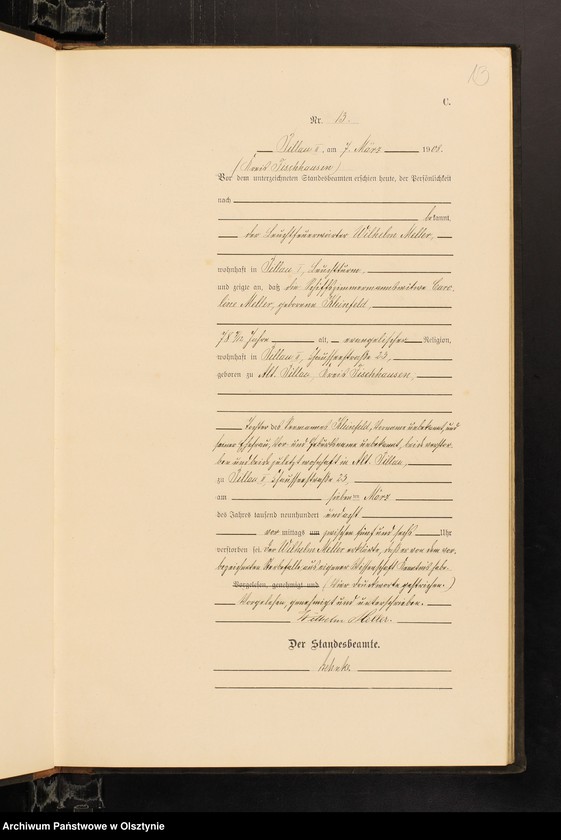 13
C.
Nr. 13.
Pillau II, am 7. März 1908.
(Kreis Fischhausen)
Vor dem unterzeichneten Standesbeamten erschien heute, der Persönlichkeit
nach
bekannt,
der Leuchtfeuerwärter Wilhelm Meller,
wohnhaft in Pillau I, Leuchtturm,
und zeigte an, daß die Schiffszimmermannswitwe Caro-
line Meller, geborene Kleinfeld,
78 Jahre alt, evangelischer Religion,
wohnhaft in Pillau II, Chausseestraße 23,
geboren zu Alt Pillau, Kreis Fischhausen,
Tochter des Seemannes Kleinfeld, Vorname unbekannt, und
seiner Ehefrau, Vor- und Geburtsname unbekannt, beide verstor-
ben und beide zuletzt wohnhaft in Alt Pillau,
zu Pillau II, Chausseestraße 23,
am sieben ten März
des Jahres tausend neunhundert und acht
vor mittags um zwischen fünf und sechs Uhr
verstorben sei. Der Wilhelm Meller erklärte, daß er von dem vor-
bezeichneten Sterbefalle aus eigener Wissenschaft Kenntnis habe.
Vorgelesen, genehmigt und (Vier Druckworte gestrichen.)
Vorgelesen, genehmigt und unterschrieben.
Wilhelm Meller.
Der Standesbeamte.
Archiwum Państwowe w Olsztynie